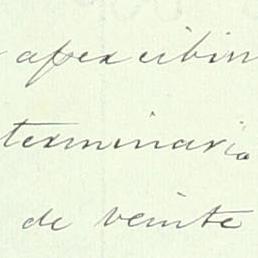 apexcibim
terminaria
de veinte